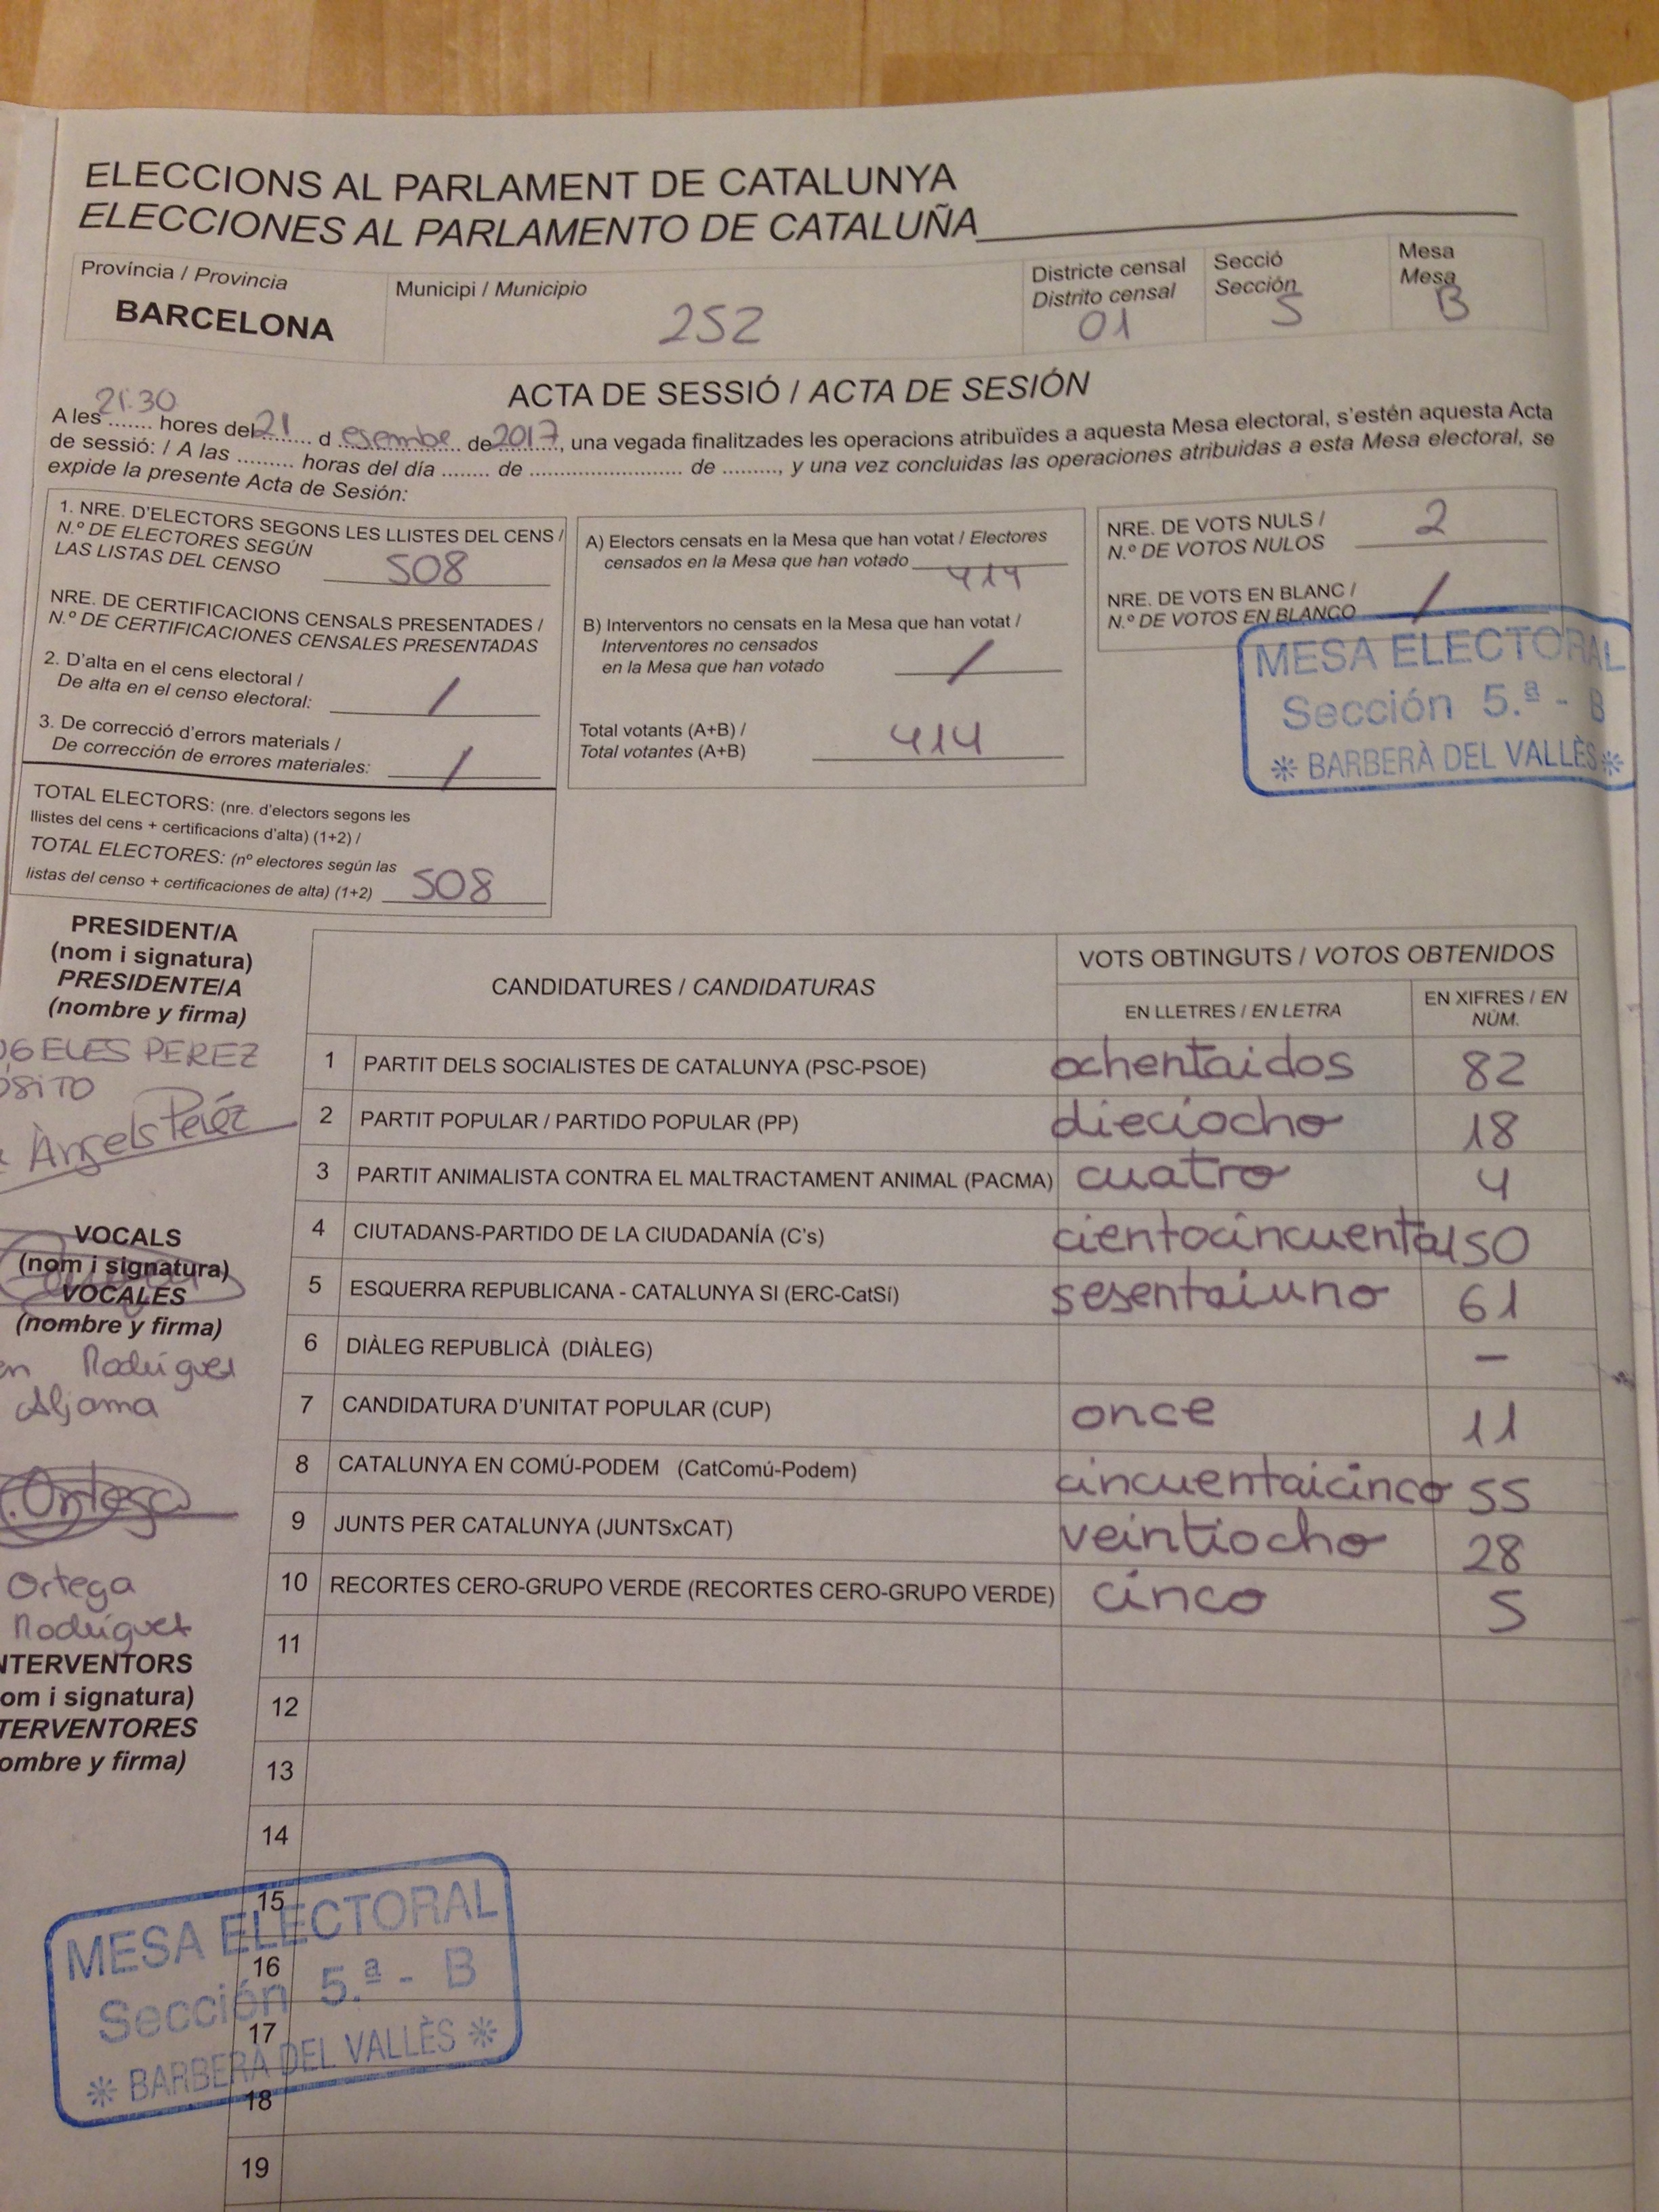 ELECCIONS AL PARLAMENT DE CATALUNYA
ELECCIONES AL PARLAMENTO DE CATALUÑA
Província / Provincia
BARCELONA
Municipi / Municipio
252
Districte censal
Distrito censal
01
Secció
Sección
5
Mesa
Mesa
B
ACTA DE SESSIÓ / ACTA DE SESIÓN
A les 21:30 hores del 21 d esembre de 2017, una vegada finalitzades les operacions atribuïdes a aquesta Mesa electoral, s'estén aquesta Acta
de sessió: / A las ......... horas del día ........ de ........................ de ........., y una vez concluidas las operaciones atribuidas a esta Mesa electoral, se
expide la presente Acta de Sesión:
1. NRE. D'ELECTORS SEGONS LES LLISTES DEL CENS /
N.º DE ELECTORES SEGÚN
LAS LISTAS DEL CENSO 508
NRE. DE CERTIFICACIONS CENSALS PRESENTADES /
N.º DE CERTIFICACIONES CENSALES PRESENTADAS
2. D'alta en el cens electoral /
De alta en el censo electoral: /
3. De correcció d'errors materials /
De corrección de errores materiales: /
TOTAL ELECTORS: (nre. d'electors segons les
llistes del cens + certificacions d'alta) (1+2) /
TOTAL ELECTORES: (nº electores según las
listas del censo + certificaciones de alta) (1+2) 508
A) Electors censats en la Mesa que han votat / Electores
censados en la Mesa que han votado 414
B) Interventors no censats en la Mesa que han votat /
Interventores no censados
en la Mesa que han votado /
Total votants (A+B) /
Total votantes (A+B) 414
NRE. DE VOTS NULS /
N.º DE VOTOS NULOS 2
NRE. DE VOTS EN BLANC /
N.º DE VOTOS EN BLANCO /
MESA ELECTORAL
Sección 5.ª - B
* BARBERÀ DEL VALLÈS *
PRESIDENT/A
(nom i signatura)
PRESIDENTE/A
(nombre y firma)
GELES PEREZ
ÓSITO
Àngels Peréz
VOCALS
(nom i signatura)
VOCALES
(nombre y firma)
en Rodríguez
Aljama
Ortega
Ortega
Rodríguez
NTERVENTORS
om i signatura)
TERVENTORES
ombre y firma)
CANDIDATURES / CANDIDATURAS
VOTS OBTINGUTS / VOTOS OBTENIDOS
EN LLETRES / EN LETRA
EN XIFRES / EN
NÚM.
1 PARTIT DELS SOCIALISTES DE CATALUNYA (PSC-PSOE) ochentaidos 82
2 PARTIT POPULAR / PARTIDO POPULAR (PP) dieciocho 18
3 PARTIT ANIMALISTA CONTRA EL MALTRACTAMENT ANIMAL (PACMA) cuatro 4
4 CIUTADANS-PARTIDO DE LA CIUDADANÍA (C's) cientocincuenta 150
5 ESQUERRA REPUBLICANA - CATALUNYA SI (ERC-CatSí) sesentaiuno 61
6 DIÀLEG REPUBLICÀ (DIÀLEG) –
7 CANDIDATURA D'UNITAT POPULAR (CUP) once 11
8 CATALUNYA EN COMÚ-PODEM (CatComú-Podem) cincuentaicinco 55
9 JUNTS PER CATALUNYA (JUNTSxCAT) veintiocho 28
10 RECORTES CERO-GRUPO VERDE (RECORTES CERO-GRUPO VERDE) cinco 5
11
12
13
14
15
16
17
18
19
MESA ELECTORAL
Sección 5.ª - B
* BARBERÀ DEL VALLÈS *